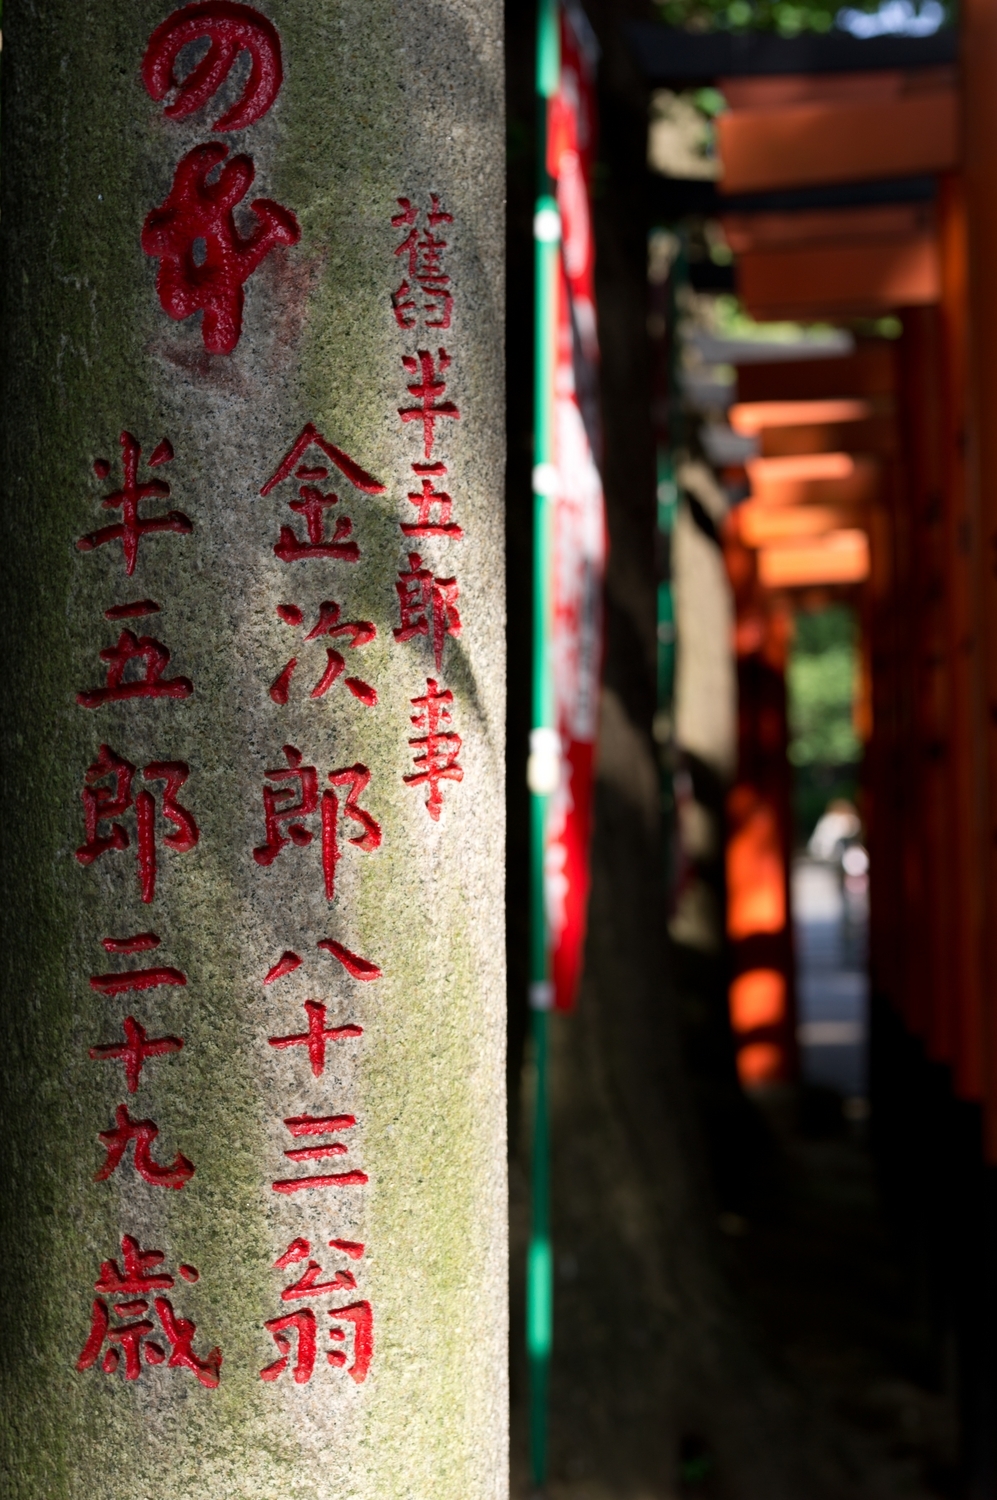 舊半五郎事
金次郎八十三翁
の
半五郎二十九歳